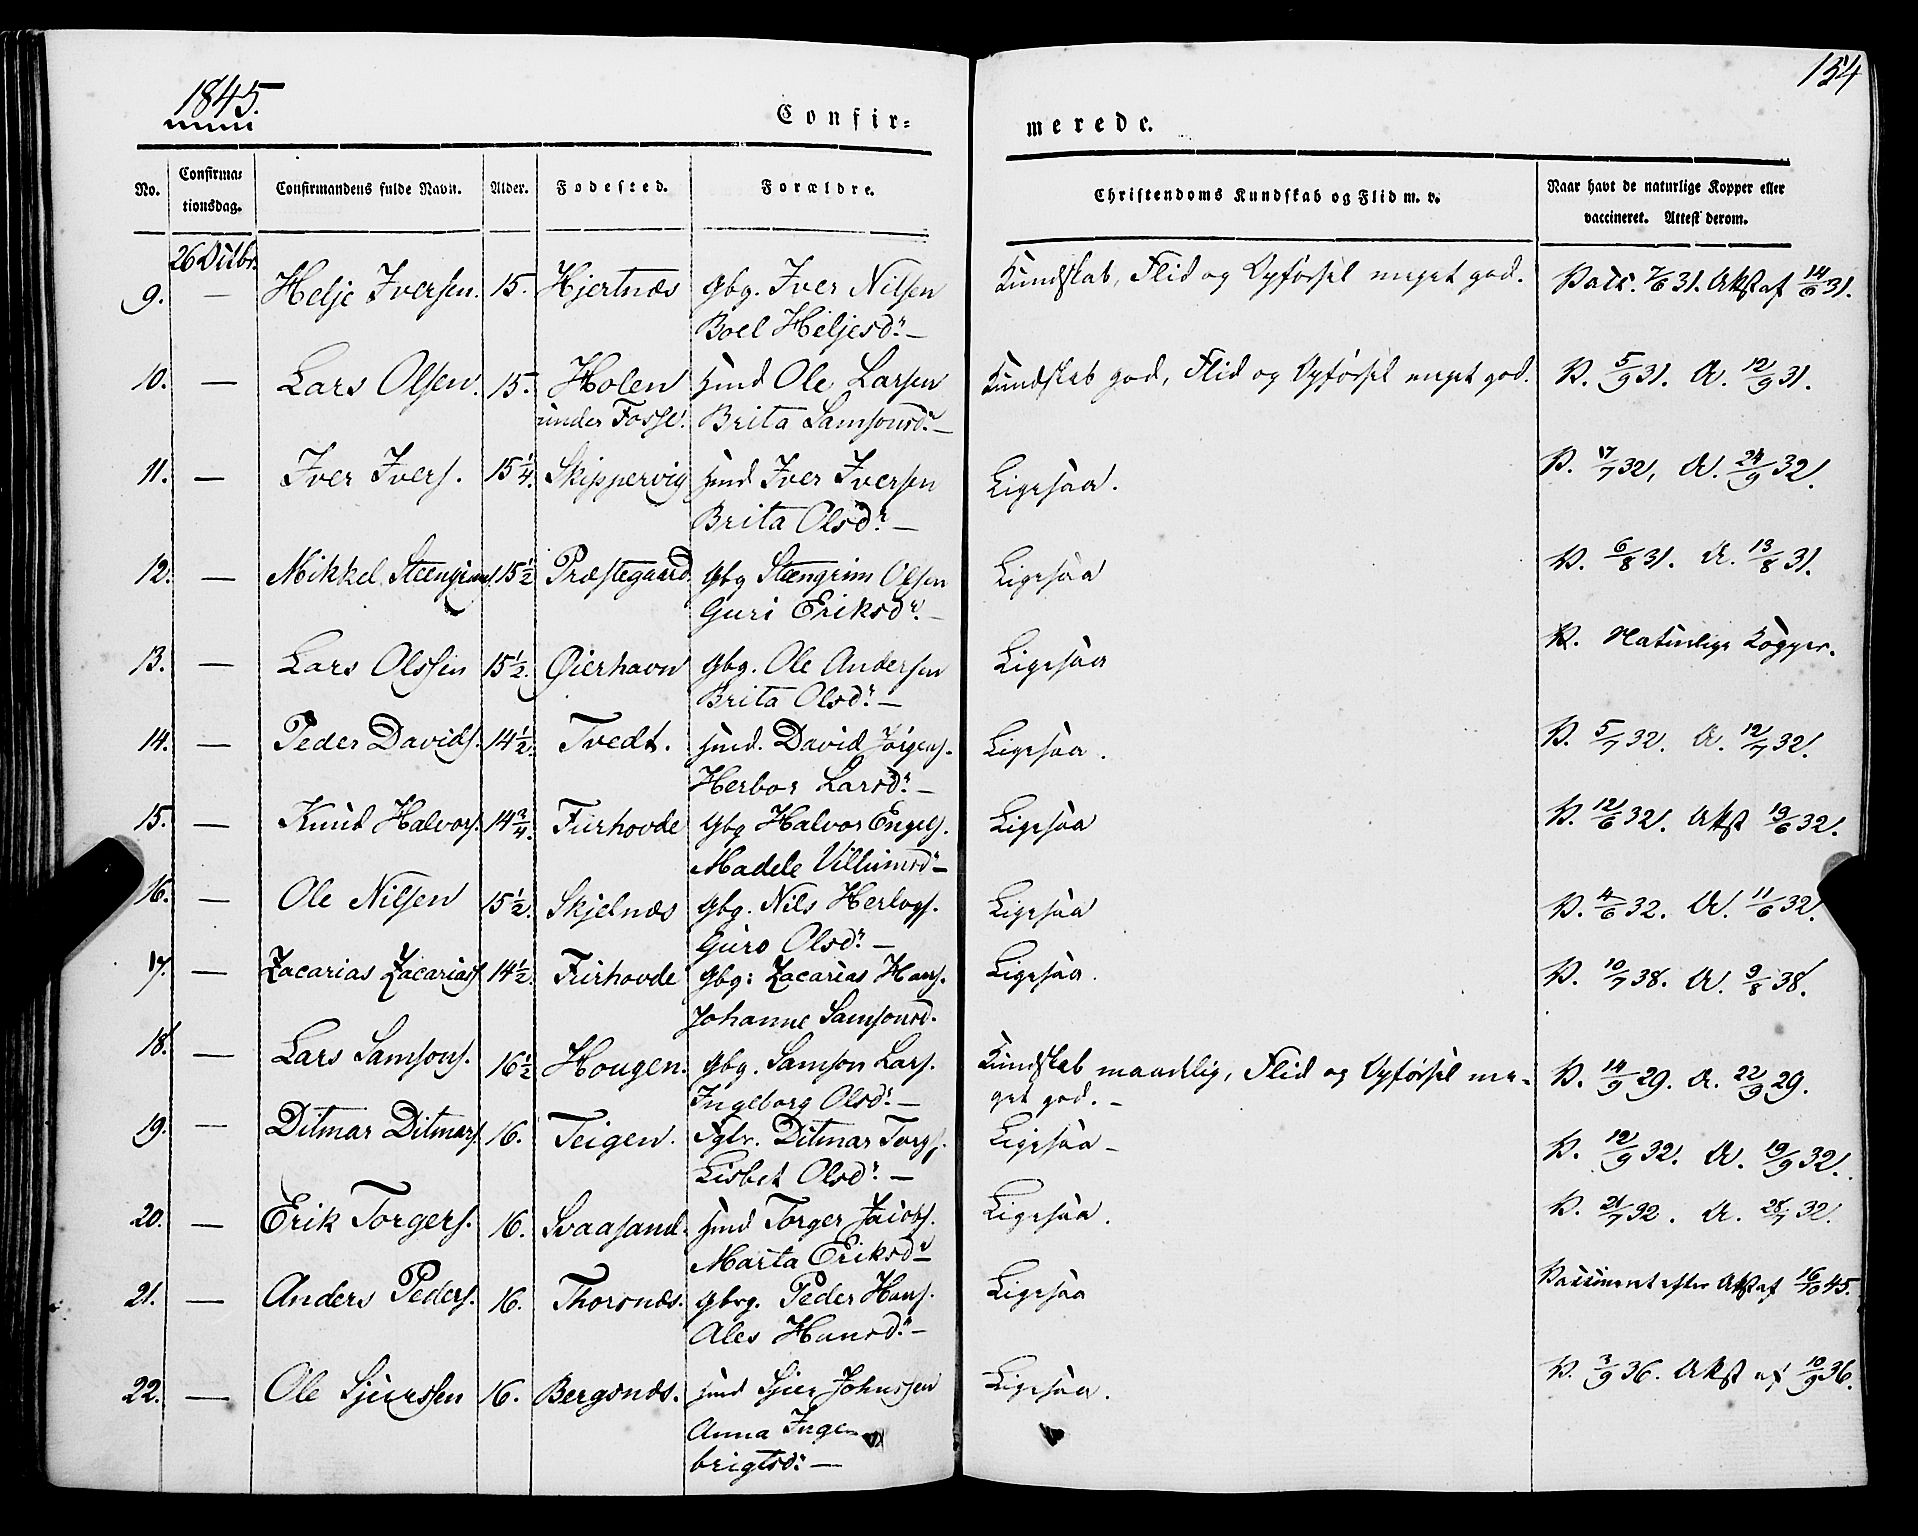 1845.
154
Confir-
merede.
No.
Confirma-
tionsdag.
Confirmandens fulde Navn.
Alder.
Fødested.
Forældre.
Christendoms Kundskab og Flid m. v.
Naar havt de naturlige Kopper eller
vaccineret. Attest derom.
26 Octbr.
9. — Helje Iversen. 15. Hjertnæs Gbg. Iver Nilsen Kundskab, Flid og Opførsel meget god. Vacc. 7/6 31. Attst af 14/6 31.
Boel Heljesdr. —
10. — Lars Olsen. 15. Holen Hmd Ole Larsen Kundskab god, Flid og Opførsel meget god. V. 5/9 31. A. 12/9 31.
under Fosse. Brita Samsonsdr. —
11. — Iver Ivers. 15 1/4. Skippervig Hmd Iver Iversen Ligesaa. V. 17/7 32, A. 24/9 32.
Brita Olsdr. —
12. — Mikkel Steengrims. 15 1/2 Præstegaard. Gbg Steengrim Olsen Ligesaa V. 6/8 31. A. 13/8 31.
Guri Eriksdr. —
13. — Lars Olssen 15 1/2. Øierhavn Gbg. Ole Andersen Ligesaa Naturlige Kopper.
Brita Olsdr. —
14. — Peder Davids. 14 1/2. Tvedt. Hmd. David Jørgens. Ligesaa. V. 5/7 32. A. 12/7 32.
Herbor Larsdr. —
15. — Knud Halvors. 14 3/4. Fiirhovde Gbg Halvor Engels. Ligesaa V. 12/6 32. Attst 19/6 32.
Madele Villumsdr —
16. — Ole Nilsen 15 1/2. Skjelnæs Gbg. Nils Herlogs. Ligesaa V. 4/6 32. A. 11/6 32.
Guro Olsdr. —
17. — Zacarias Zacarias. 14 1/2. Fiirhovde Gbg: Zacarias Hans. Ligesaa. V. 10/7 38. A. 9/8 38.
Johanne Samsonsd.
18. — Lars Samsons. 16 1/2 Hougen. Gbg. Samson Lars. Kundskab maadelig, Flid og Opførsel me- V. 14/9 29. A. 22/9 29.
Ingeborg Olsdr. — get god. —
19. — Ditmar Ditmars. 16. Teigen. Ditmar Torgs. Ligesaa — V. 12/9 32. A. 19/9 32.
Lisbet Olsdr. —
20. — Erik Torgers. 16. Svaasand. Hmd Torger Jacobs. Ligesaa. V. 21/7 32. A. 28/7 32.
Marta Eriksdr —
21. — Anders Peders. 16. Thorsnæs. Gbrg. Peder Hans. Ligesaa Vaccineret efter Attst af 16/10 45.
Ales Hansdr. —
22. — Ole Sjurssen 16. Bergsnæs. Hmd Sjur Johnssen Ligesaa. V. 3/9 36. Attst af 10/9 36.
Anna Inge-
brigtsdr. —